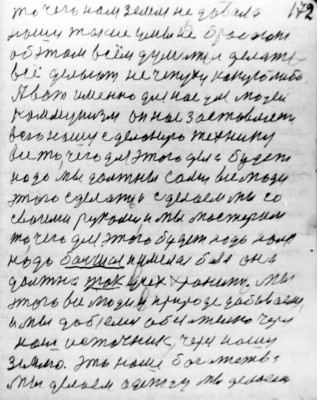 то чего нам земля не давала 172
наши такие цивы не бросают
об этом всём думать и делать
всё делают не чепуху какую либо
А вот именно для нас для людей
коммунизм он нас заставляет
всю нашу сделанную технику
всё то чего для этого дела будет
надо мы должны сами все люди
этого сделать и сделаем мы со
своими руками и мы мастерим
то чего для этого будет надо нам
надо бывшая имелась бы она
должна так всех хранить. Мы
этого все люди в природе добываем
и мы добъёмся обязательно через
нам источник, через нашу
землю. Это наше богатство
мы делаем одежду мы делаем